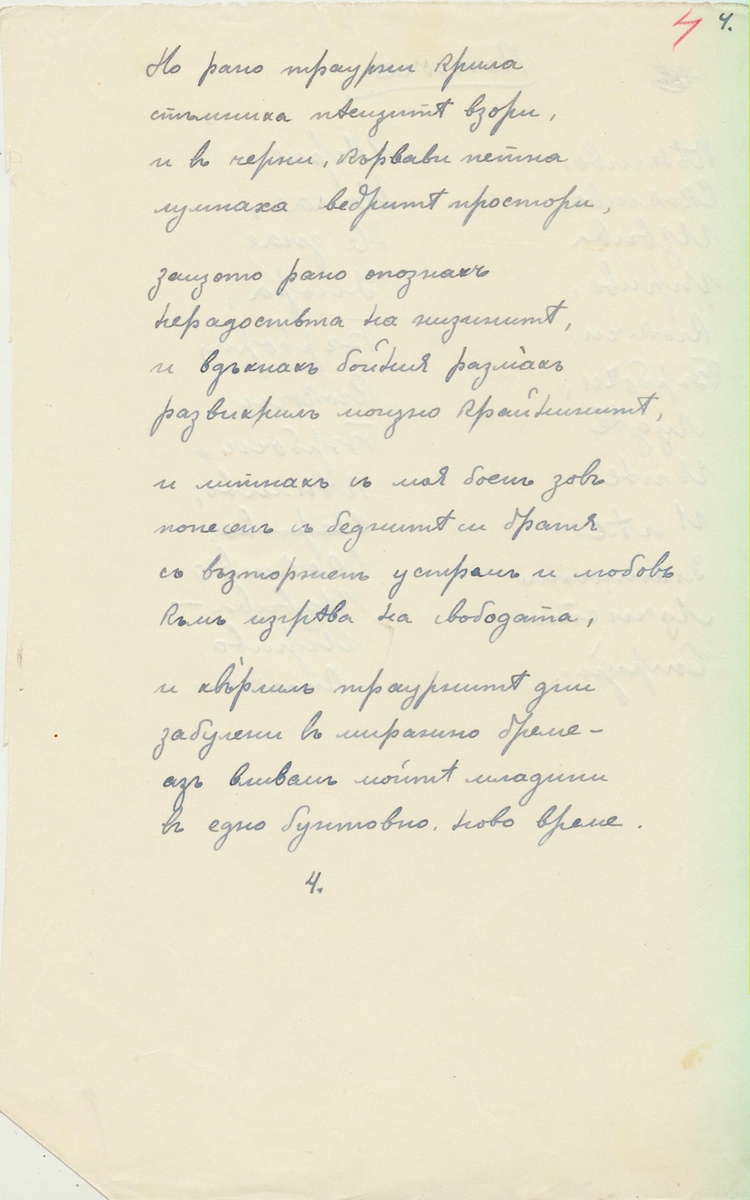 4 4.
Но рано траурни крила
стъмниха ивзори,
и въ черни, кървави петна
лумнаха ведритѣ простори,
защото рано опознахъ
нерадостьта на низинитѣ,
и вдъхнахъ бойния размахъ
развихрилъ мощно крайнинитѣ,
и литнахъ съ моя боенъ зовъ
понесенъ съ беднитѣ си братя
съ възторженъ устремъ и любовь
къмъ изгрѣва на свободата,
и хвърлилъ траурнитѣ дни
забулени въ миражно бреме –
азъ вливамъ мойтѣ младини
въ едно бунтовно. ново време.
4.